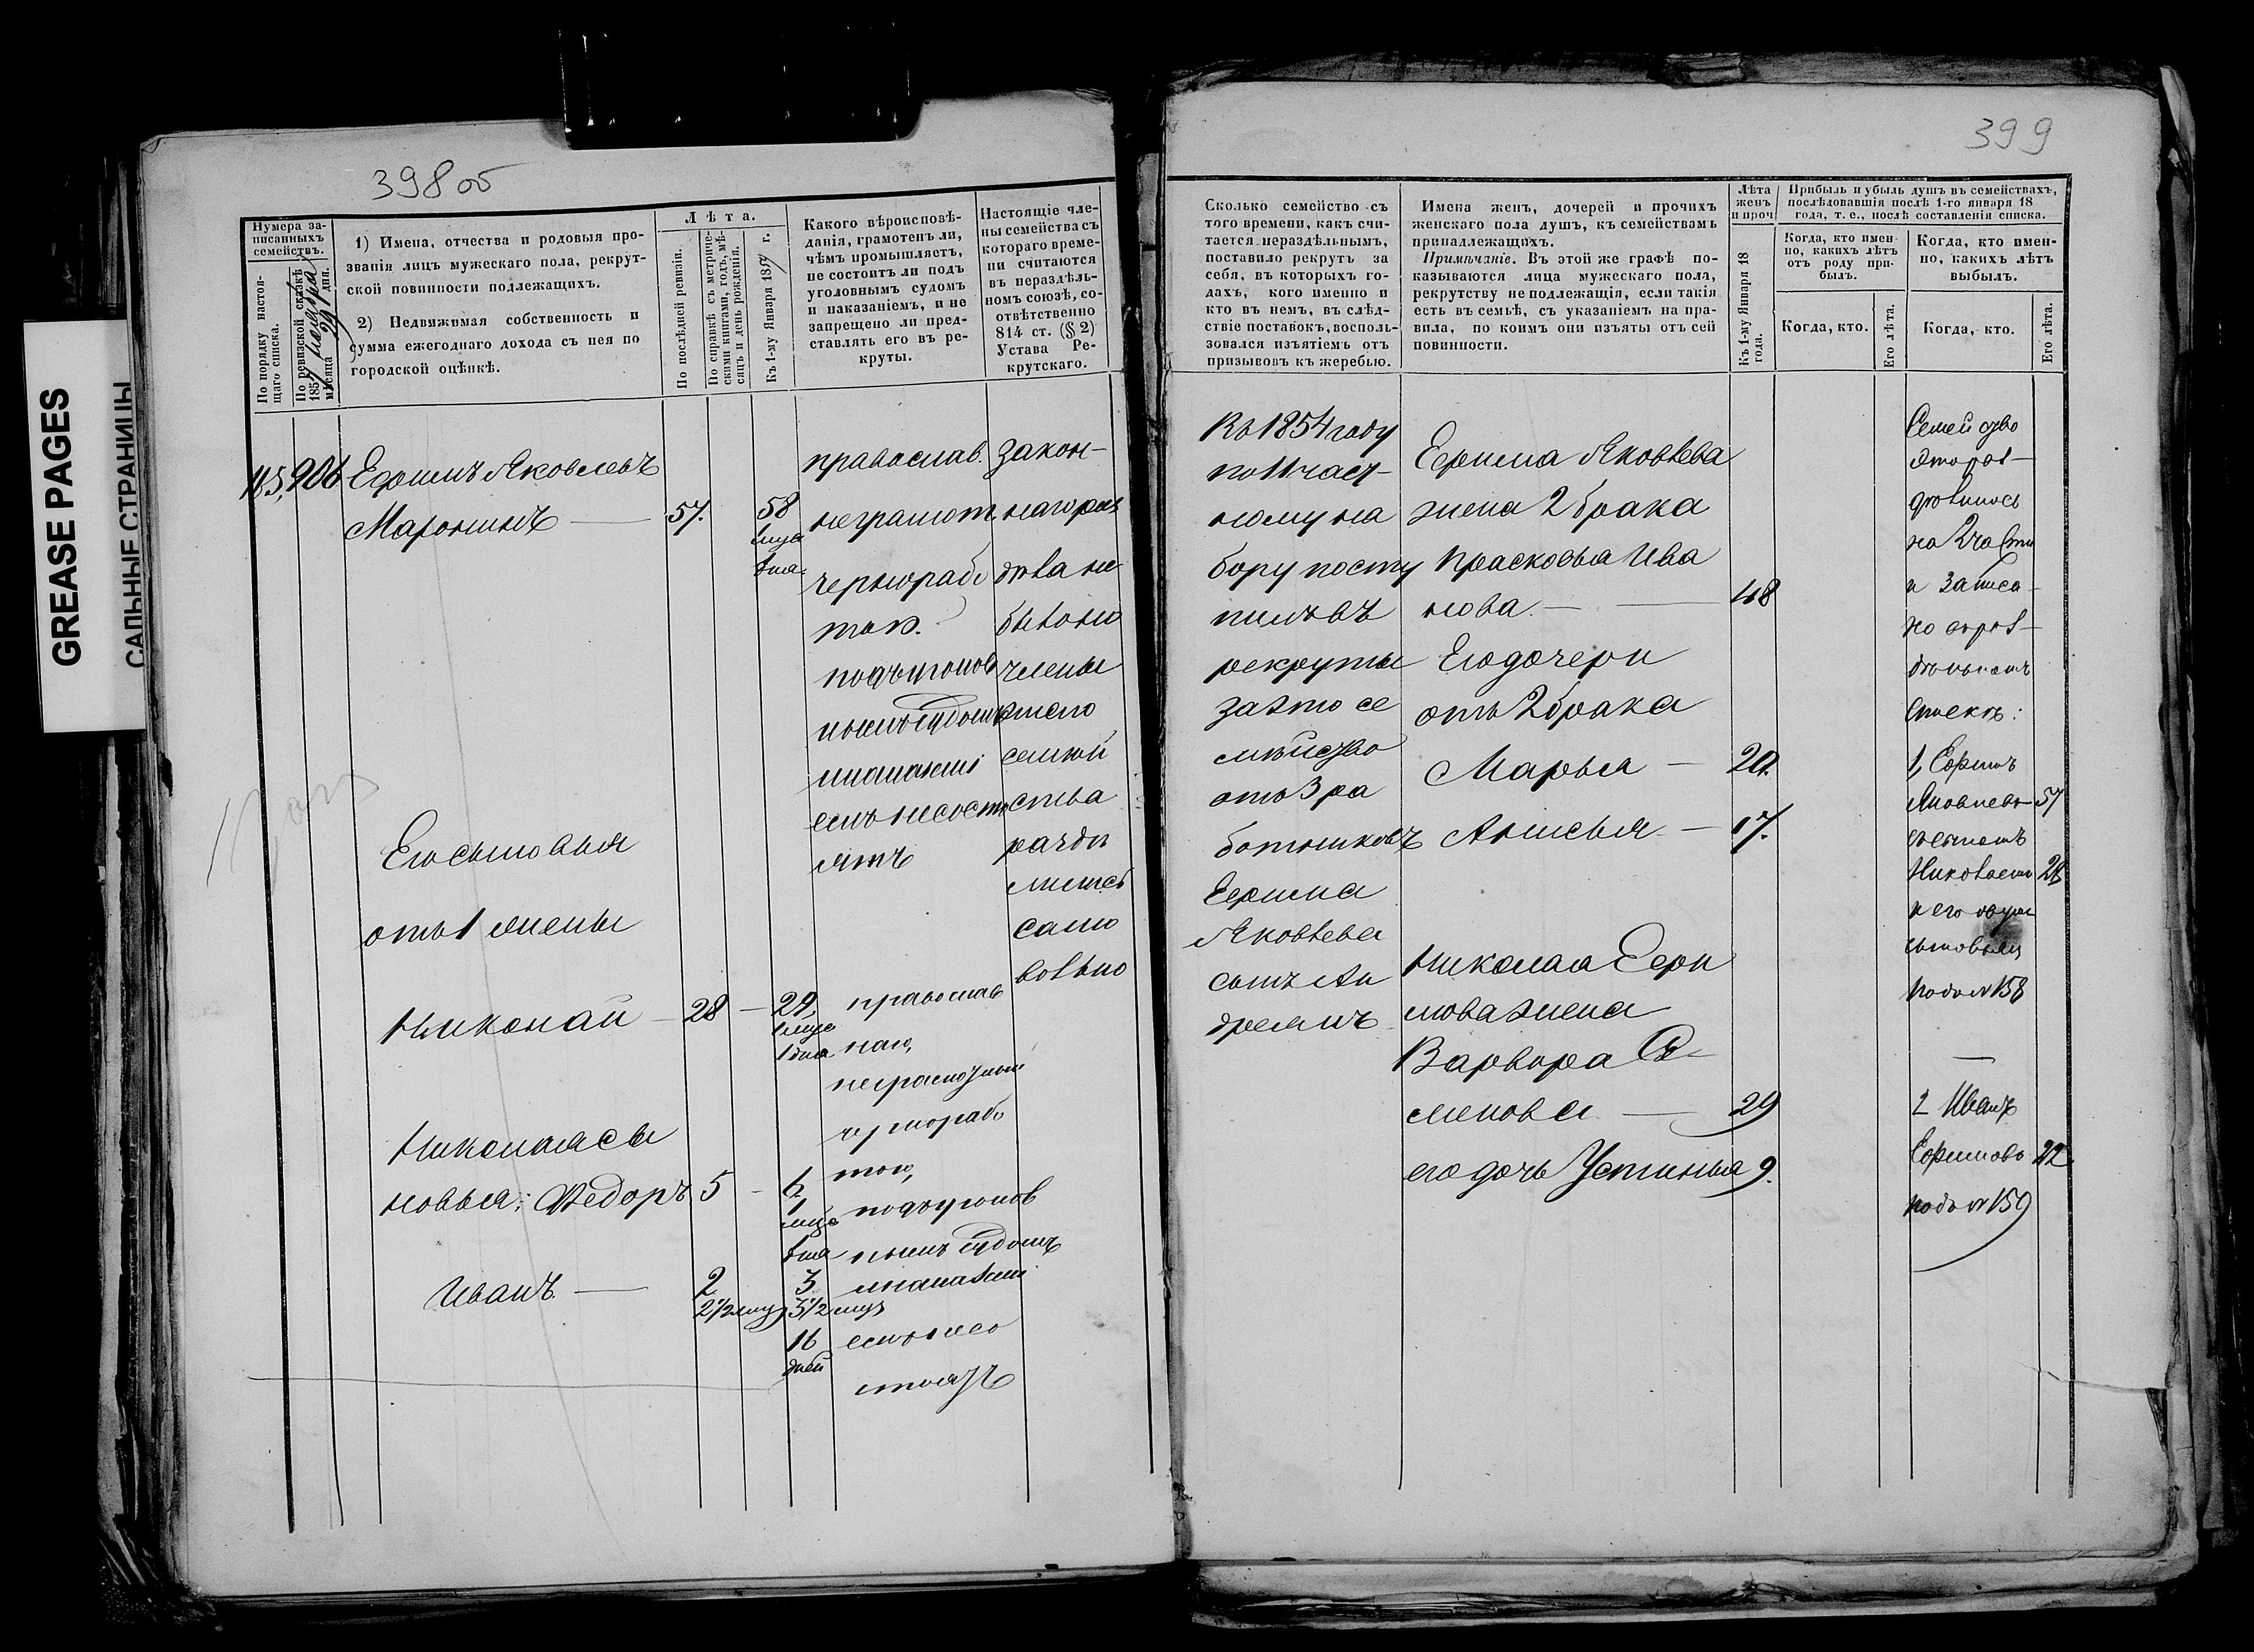 GREASE PAGES
САЛЬНЫЕ СТРАНИЦЫ
398 об
Нумера за-
писанныхъ
семействъ.
По порядку настоя-
щаго списка.
По ревизской сказкѣ
1857
мѣсяца 29 дня.
1) Имена, отчества и родовыя про-
званія лицъ мужескаго пола, рекрут-
ской повинности подлежащихъ.
2) Недвижимая собственность и
сумма ежегоднаго дохода съ нея по
городской оцѣнкѣ.
Лѣта.
По послѣдней ревизіи.
По справкѣ съ метриче-
скими книгами, годъ, мѣ-
сяцъ и день рожденія.
Къ 1-му Января 185 г.
Какого вѣроисповѣ-
данія, грамотенъ ли,
чѣмъ промышляетъ,
не состоитъ ли подъ
уголовнымъ судомъ
и наказаніемъ, и не
запрещено ли пред-
ставлять его въ ре-
круты.
Настоящіе чле-
ны семейства съ
котораго време-
ни считаются
въ нераздѣль-
номъ союзѣ, со-
отвѣтственно
814 ст. (§ 2)
Устава Ре-
крутскаго.
906
Ефимъ Яковлевъ
Маронинъ — 57.
58
1 мца
1 дня
православ.
неграмот.
чернораб
тою.
подъуголов
нымъ судомъ
инаказані
емъ несосто
итъ
закон-
наго раз
дѣла не
было но
члены
этого
семей
ства
раздѣ
лились
само
вольно
Его сыновья
отъ 1 жены
Николай — 28 — 29,
1 мца
1 дня
православ
наго,
неграмотный
чернорабо
тою,
подъуголов
нымъ судомъ
инаказані
емъ несо
стоитъ
Николая сы
новья: Федоръ 5 — 6
1
мца
1 дня
Иванъ — 2
2 1/2 мца
3
3 1/2 мца
16
дней
399
Сколько семейство съ
того времени, какъ счи-
тается нераздѣльнымъ,
поставило рекрутъ за
себя, въ которыхъ го-
дахъ, кого именно и
кто въ немъ, въ слѣд-
ствіе поставокъ, восполь-
зовался изъятіемъ отъ
призывовъ къ жеребью.
Имена женъ, дочерей и прочихъ
женскаго пола душъ, къ семействамъ
принадлежащихъ.
Примѣчаніе. Въ этой же графѣ по-
казываются лица мужескаго пола,
рекрутству неподлежащія, если такія
есть въ семьѣ, съ указаніемъ на пра-
вила, по коимъ они изъяты отъ сей
повинности.
Лѣта
женъ
и проч
Къ 1-му Января 18
года.
Прибыль и убыль душъ въ семействахъ,
послѣдовавшія послѣ 1-го января 18
года, т. е., послѣ составленія списка.
Когда, кто имен
но, какихъ лѣтъ
отъ роду при-
былъ.
Когда, кто имен-
но, какихъ лѣтъ
выбылъ.
Когда, кто.
Его лѣта.
Когда, кто.
Его лѣта.
Въ 1854 году
по 11 част-
ному на
бору посту
пилъ въ
рекруты
за это се
мейство
отъ 3 ра
ботниковъ
Ефима
Яковлева
сынъ Ан
дреянъ
Ефима Яковлева
жена 2 брака
Прасковья Ива
нова — 48
Его дочери
отъ 2 брака
Марья — 20.
Анисья — 17.
Николая Ефи
мова жена
Варвора Се-
менова — 29
его дочь Устинья 9.
Семейство
на 2 части
и записа-
но
спискѣ:
1, Ефимъ
Яковлевъ 57
съ сыномъ
Николаемъ 28
и его двумя
сыновьями
подъ № 158
2 Иванъ
Ефимовъ 22
подъ № 159